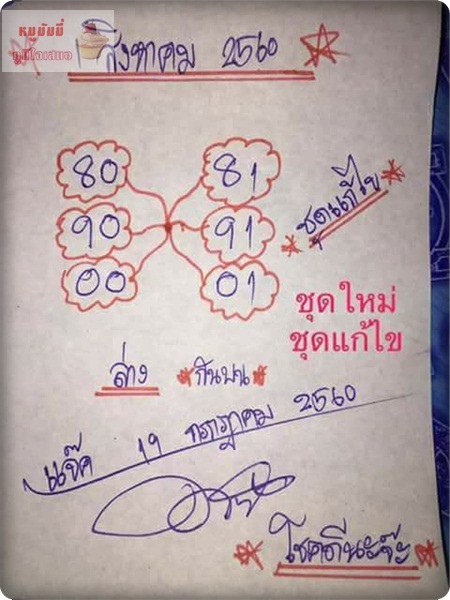 หมูบัมบี่
สิงหาคม 2560
80 81
90 91
00 01
ชุดแก้ไข
ชุดใหม่
ชุดแก้ไข
ล่าง กันบน
แจ๊ค 19 กรกฎาคม 2560
โชคดีนะจ๊ะ